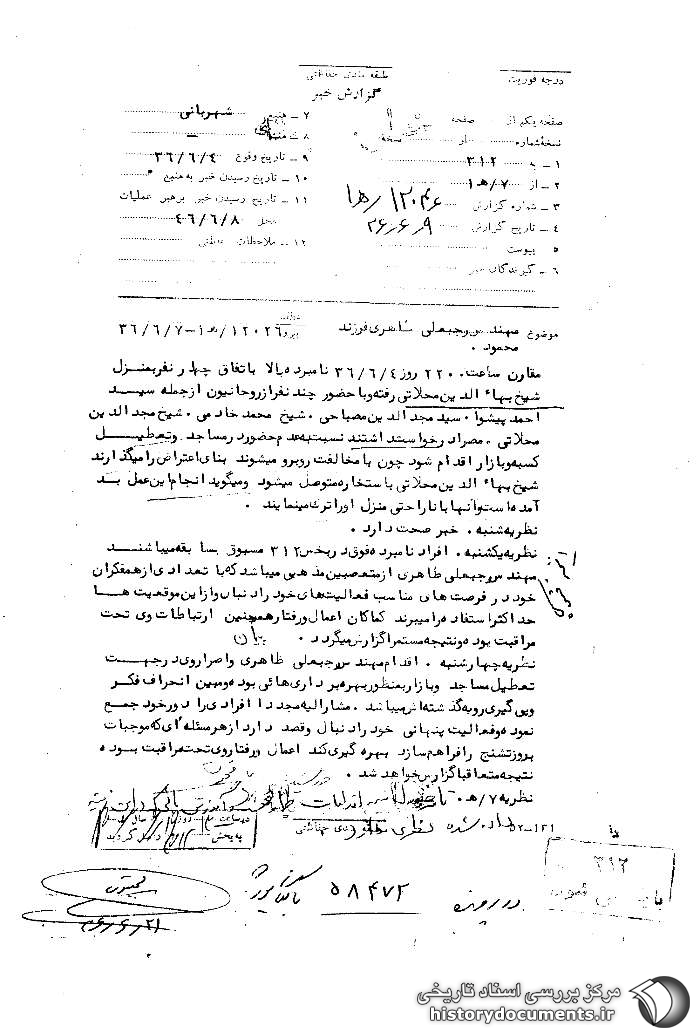 درجه فوریت
طبقه بندی حفاظتی
گزارش خبر
صفحه یکم از صفحه
نسخه شماره از نسخه
۱ - به ۳۱۲
۲ - از ۷/ه‍ ۱
۳ - شماره گزارش
۴ - تاریخ گزارش ۳۶/۶/۹
۵ پیوست
۶ - گیرندگان خبر
۷ - منبع شهربانی
۸ - منشاء -
۹ - تاریخ وقوع ۳۶/۶/۴
۱۰ - تاریخ رسیدن خبر به منبع
۱۱ - تاریخ رسیدن خبر برهبر عملیات
محل ۴۶/۶/۸
۱۲ - ملاحظات حفاظتی
موضوع مهندس رجبعلی طاهری فرزند
محمود .
پیرو ۱۲۰۲۶/ه‍ ۱-۳۶/۶/۷
مقارن ساعت ۲۲۰۰ روز ۳۶/۶/۴ نامبرده بالا باتفاق چهار نفر بمنزل
شیخ بهاء الدین محلاتی رفته و با حضور چند نفر از روحانیون از جمله سید
احمد پیشوا . سید مجد الدین مصباحی . شیخ محمد خادمی . شیخ مجد الدین
محلاتی . مصرا درخواست داشتند نسبت به عدم حضور در مساجد و تعطیل
کسبه و بازار اقدام شود چون با مخالفت روبرو میشوند بنای اعتراض را میگذارند
شیخ بهاء الدین محلاتی با ستخاره متوصل میشود و میگوید انجام این عمل بد
آمده است و آنها با ناراحتی منزل او را ترک مینمایند .
نظریه شنبه . خبر صحت دارد .
نظریه یکشنبه . افراد نامبرده فوق در بخش ۳۱۲ مسبوق بسابقه میباشند
مهندس رجبعلی طاهری از متعصبین مذهبی میباشد که با تعدادی از همفکران
خود در فرصت های مناسب فعالیت های خود را دنبال و از این موقعیت ها
حداکثر استفاده را میبرند کماکان اعمال و رفتار همچنین ارتباطات وی تحت
مراقبت بوده و نتیجه مستمرا گزارش میگردد .
نظریه چهارشنبه . اقدام مهندس رجبعلی طاهری و اصرار وی در جهت
تعطیل مساجد و بازار بمنظور بهره برداری هائی بوده و مبین انحراف فکر
و پی گیری رویه گذشته اش میباشد . مشارالیه مجددا افرادی را دور خود جمع
نموده و فعالیت پنهانی خود را دنبال و قصد دارد از هر مسئله ای که موجبات
بروز تشنج را فراهم سازد بهره گیری کند اعمال و رفتار وی تحت مراقبت بوده
نتیجه متعاقبا گزارش خواهد شد .
نظریه ۷/ه‍ .
۵۲-۱۲۱
طبقه بندی حفاظتی
۳۱۲
در پرونده ۵۸۴۷۲ بایگانی شود
مرکز بررسی اسناد تاریخی
historydocuments.ir